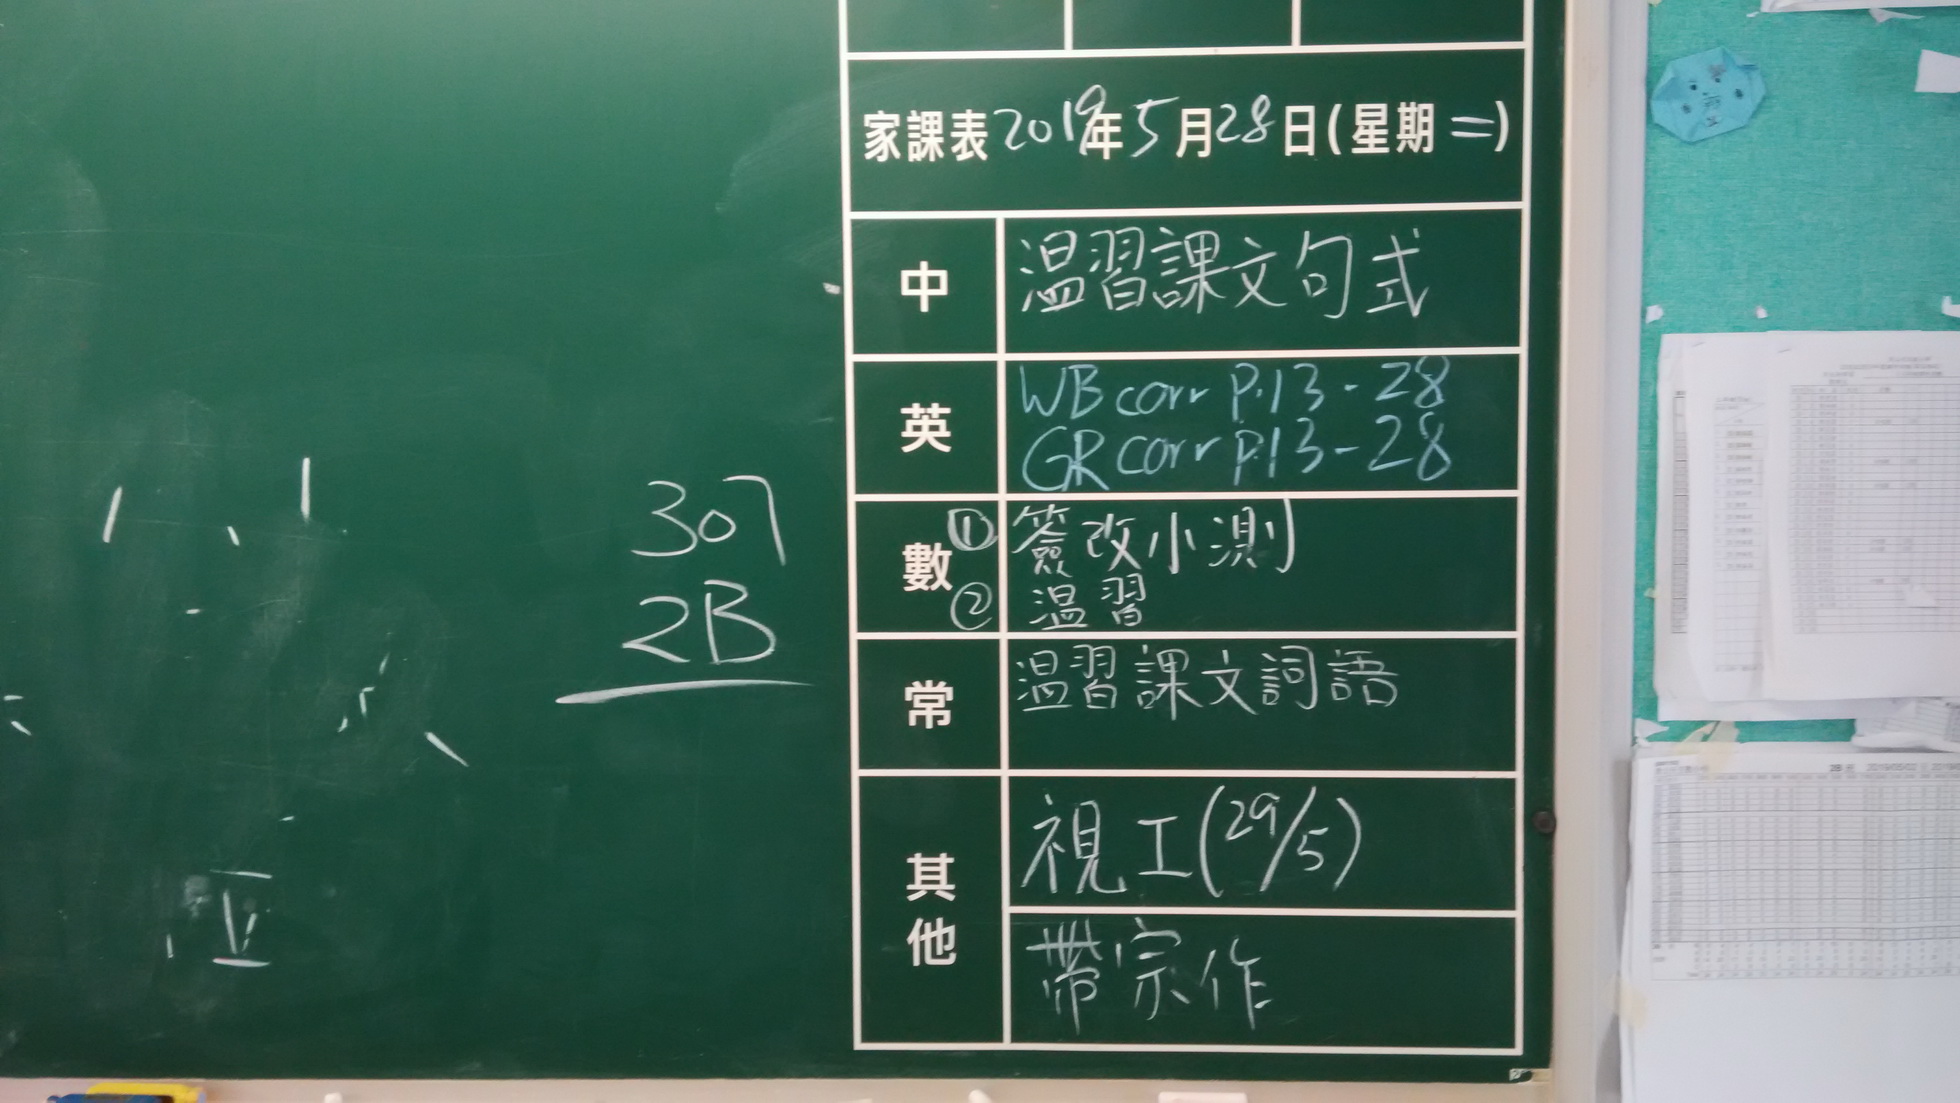 家課表2019年5月28日(星期二)
中 温習課文句式
英 WB corr P.13-28
GR corr P.13-28
數 ① 簽改小測
② 温習
常 温習課文詞語
其他 視工(29/5)
帶宗作
307
2B